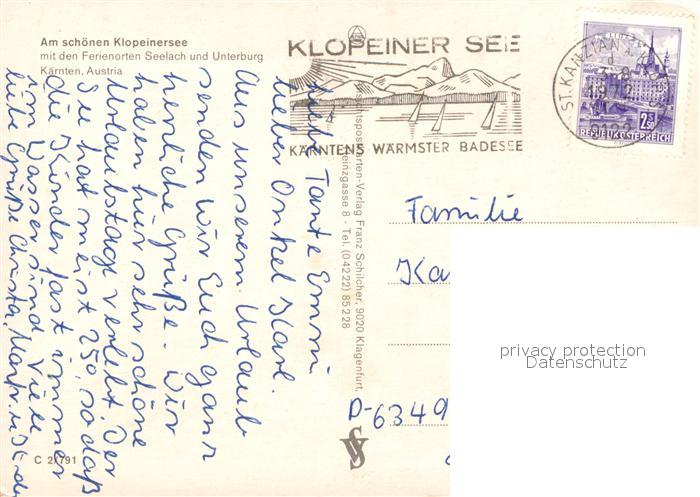 Am schönen Klopeinersee
mit den Ferienorten Seelach und Unterburg
Kärnten, Austria
KLOPEINER SEE
KÄRNTENS WÄRMSTER BADESEE
ST. KANZIAN
REPUBLIK ÖSTERREICH
2.50
Liebe Tante Emmi
lieber Onkel Karl.
Aus unserem Urlaub
senden wir Euch ganz
herzliche Grüße. Wir
haben hier sehr schöne
Urlaubstage verlebt. Der
See hat meist 25°, so daß
die Kinder fast immer
im Wasser sind. Viele
liebe Grüße Christa,
Ansichtspostkarten-Verlag Franz Schilcher, 9020 Klagenfurt,
8 - Tel. (04222) 85228
Familie
Ka
D-6349
privacy protection
Datenschutz
C 2/791